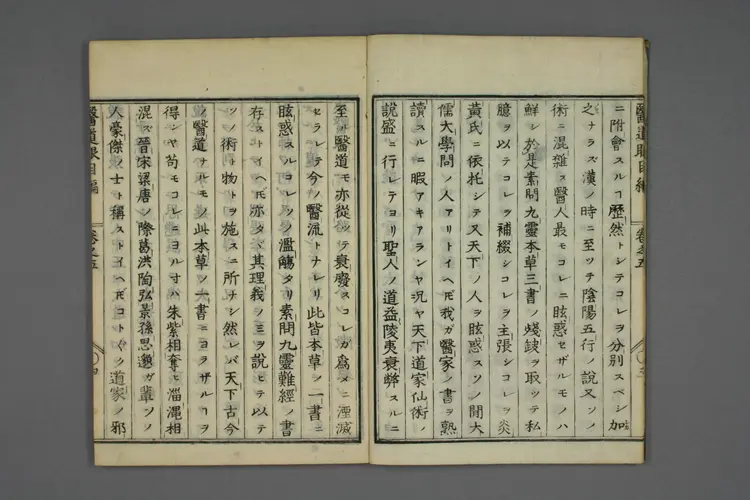 醫道眼目編 卷之五
ニ附會スルヿ歴然トシテコレヲ分別スベシ加
之ナラズ漢ノ時ニ至ツテ陰陽五行ノ說又ソノ
術ニ混雜ス醫人最モコレニ眩惑セザルモノハ
鮮シ於是素問九靈本草三書ノ殘缺ヲ取ツテ私
臆ヲ以テコレヲ補綴シコレヲ主張シコレヲ炎
黃氏ニ依托シテ又天下ノ人ヲ眩惑スソノ間大
儒大學問ノ人アリトイヘ𪜈我ガ醫家ノ書ヲ熟
讀スルニ暇アキアランヤ况ヤ天下道家仙術ノ
說盛ニ行レテヨリ聖人ノ道益陵夷衰弊スルニ
至ル醫道モ亦從ツテ衰廢スコレガ爲メニ湮滅
セラレテ今ノ醫流トナレリ此皆本草ノ一書ニ
眩惑スルコレソノ濫觴タリ素問九靈難經ノ書
存ストイヘ𪜈亦タヾ其理義ノミヲ說ヒテ以テ
ソノ術ト物トヲ施スニ所ナシ然レバ天下古今
ノ醫道ナルモノ此本草ノ一書ニヨラザルヿヲ
得ンヤ苟モコレニヨル寸ハ朱紫相奪ヒ淄澠相
混ズ晉宋梁唐ノ際葛洪陶弘景孫思邈ガ輩ソノ
人豪傑ノ士ト稱ストイヘ𪜈コト〲ク道家ノ邪
醫道眼目編 卷之五 四